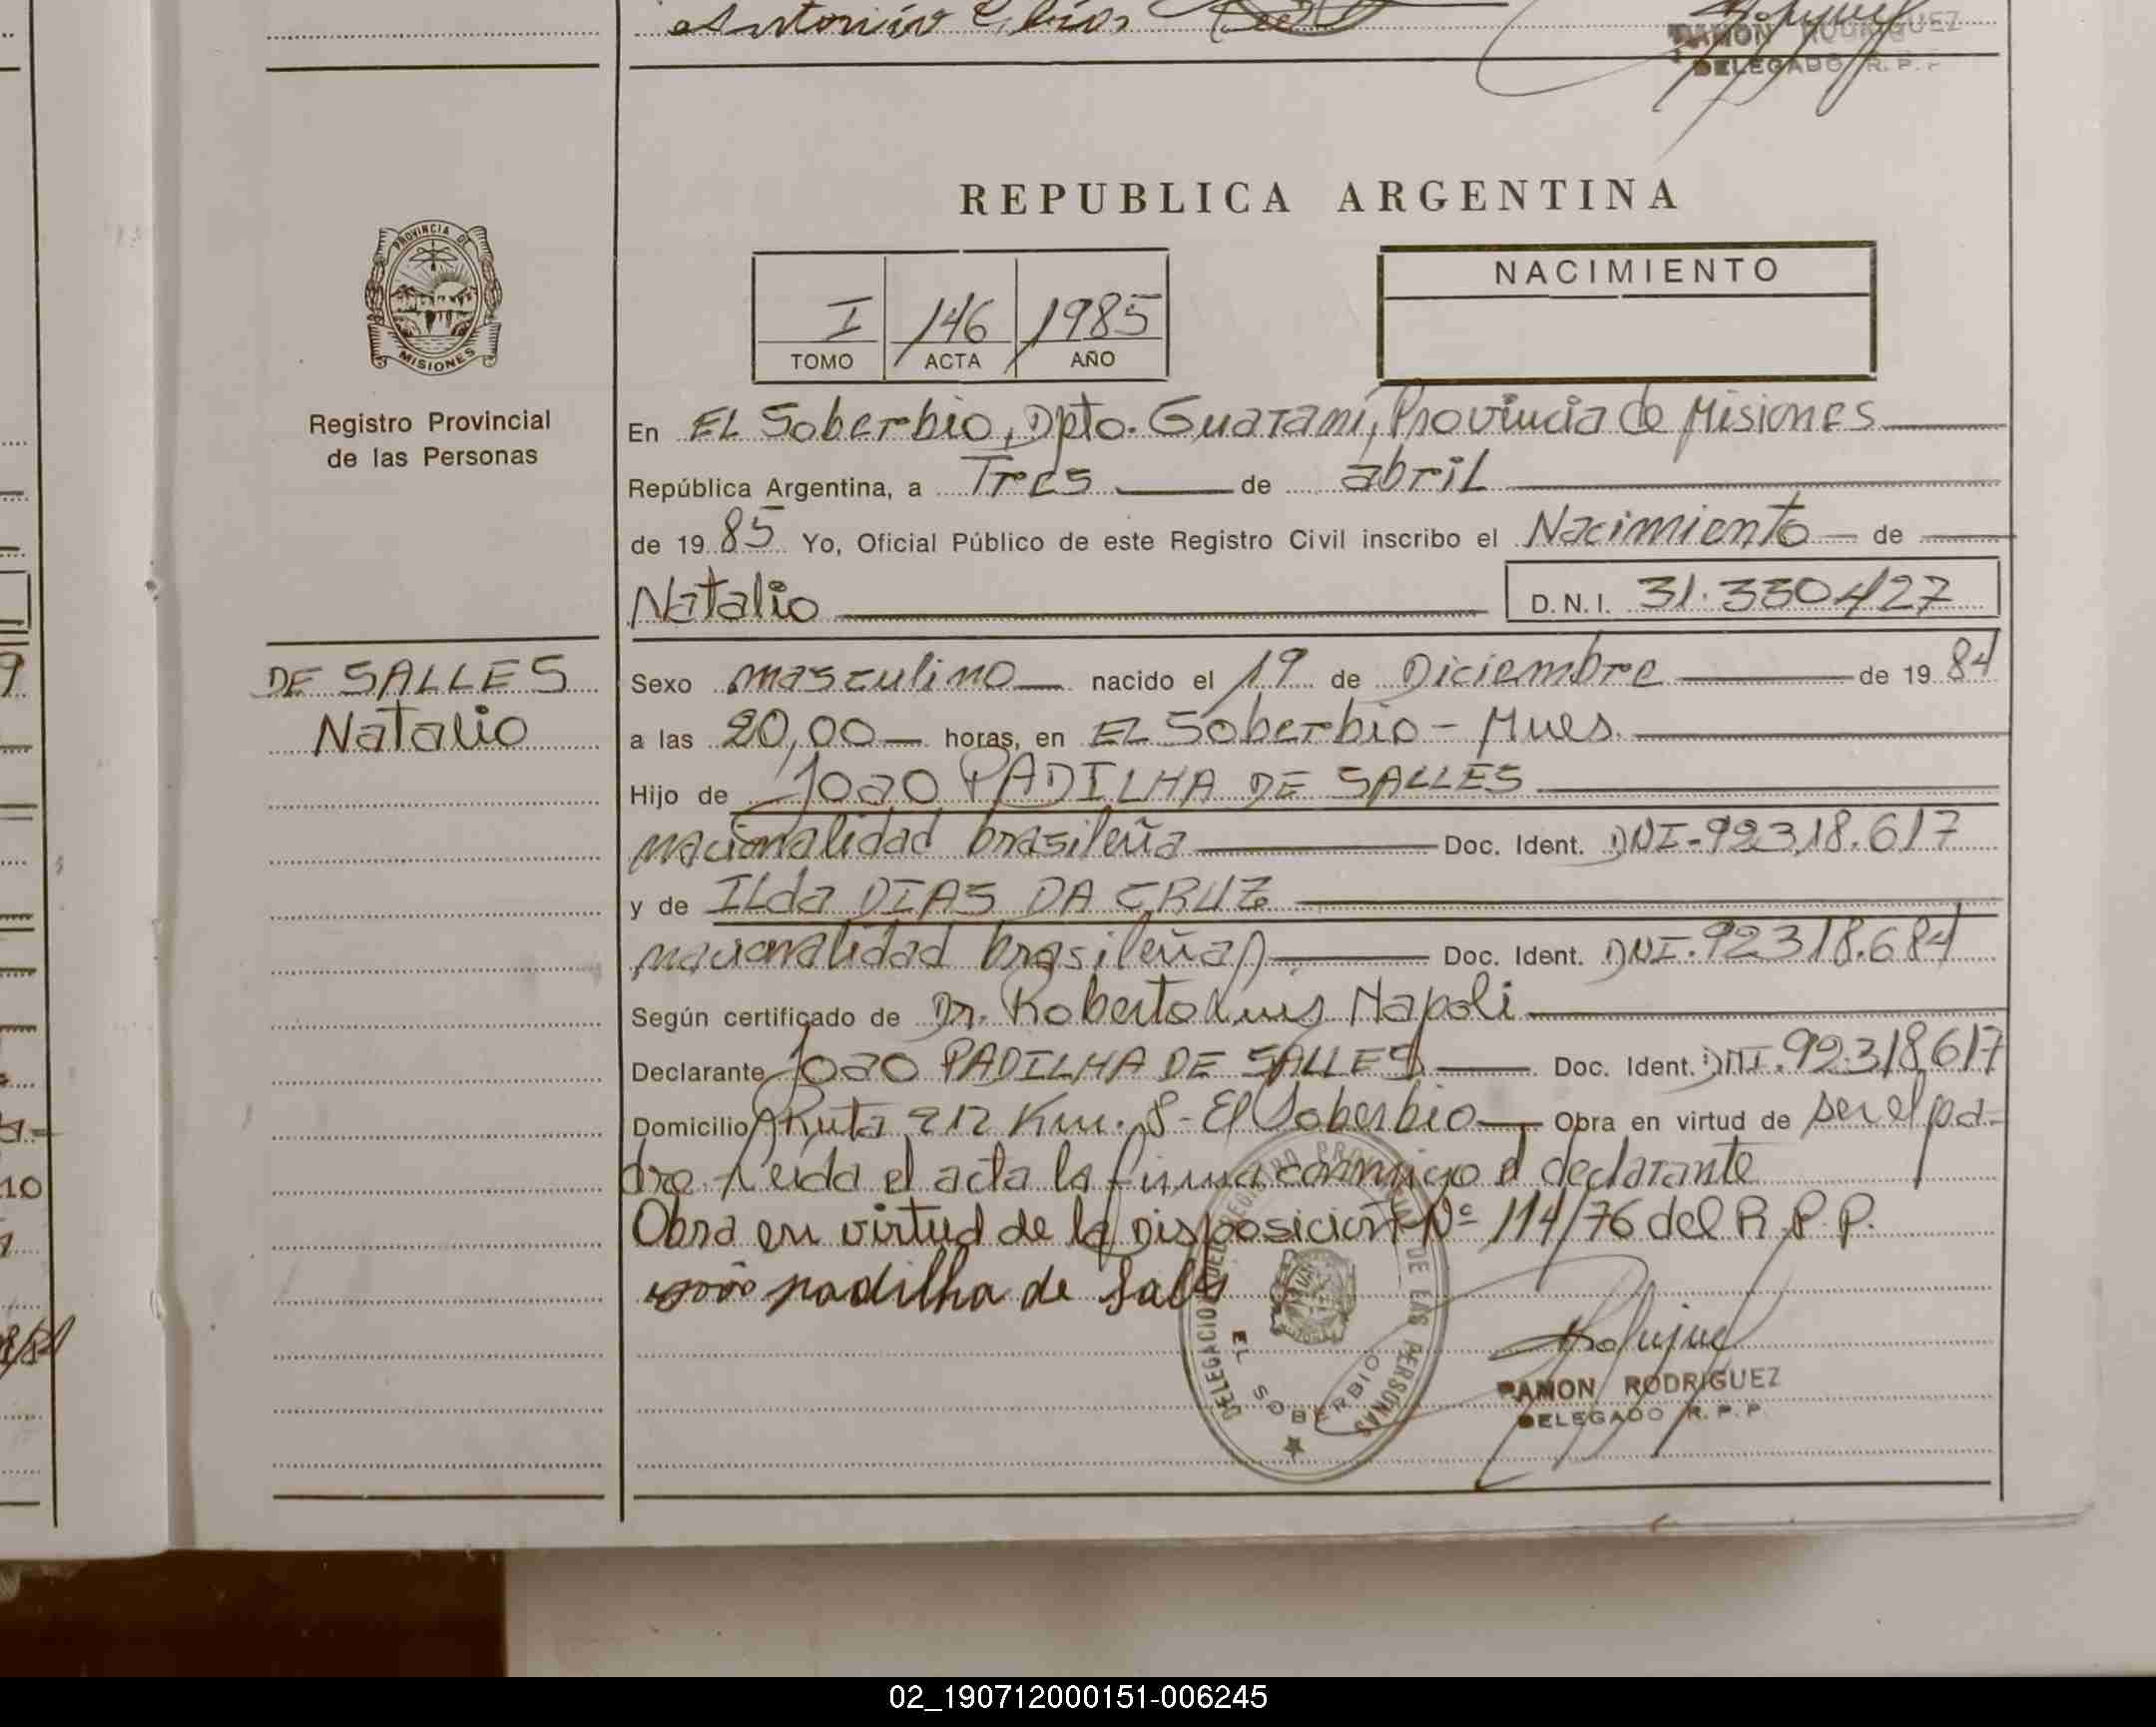 Antonio
RAMON RODRIGUEZ
DELEGADO R. P. P.
PROVINCIA DE
MISIONES
Registro Provincial
de las Personas
REPUBLICA ARGENTINA
I 146 1985
TOMO ACTA AÑO
NACIMIENTO
En EL Soberbio, Dpto. Guaraní, Provincia de Misiones
República Argentina, a Tres de abril
de 19 85 Yo, Oficial Público de este Registro Civil inscribo el Nacimiento de
Natalio D.N.I. 31.330427
DE SALLES
Natalio
Sexo masculino nacido el 19 de Diciembre de 19 84
a las 20,00 horas, en EL Soberbio - Mnes.
Hijo de Joao PADILHA DE SALLES
nacionalidad brasileña Doc. Ident. DNI-92318.617
y de ILda DIAS DA CRUZ
nacionalidad brasileña Doc. Ident. DNI.92318.684
Según certificado de Dr. Roberto Luis Napoli
Declarante Joao PADILHA DE SALLES Doc. Ident. DNI.92.318617
Domicilio Ruta 212 Km. 8 - El Soberbio Obra en virtud de ser el pa-
dre. Leída el acta la firma conmigo el declarante
Obra en virtud de la Disposición Nº 114/76 del R.P.P.
João padilha de Sales
DELEGACION DEL REGISTRO PROVINCIAL DE LAS PERSONAS
EL SOBERBIO
RAMON RODRIGUEZ
DELEGADO R. P. P.
10
02_190712000151-006245